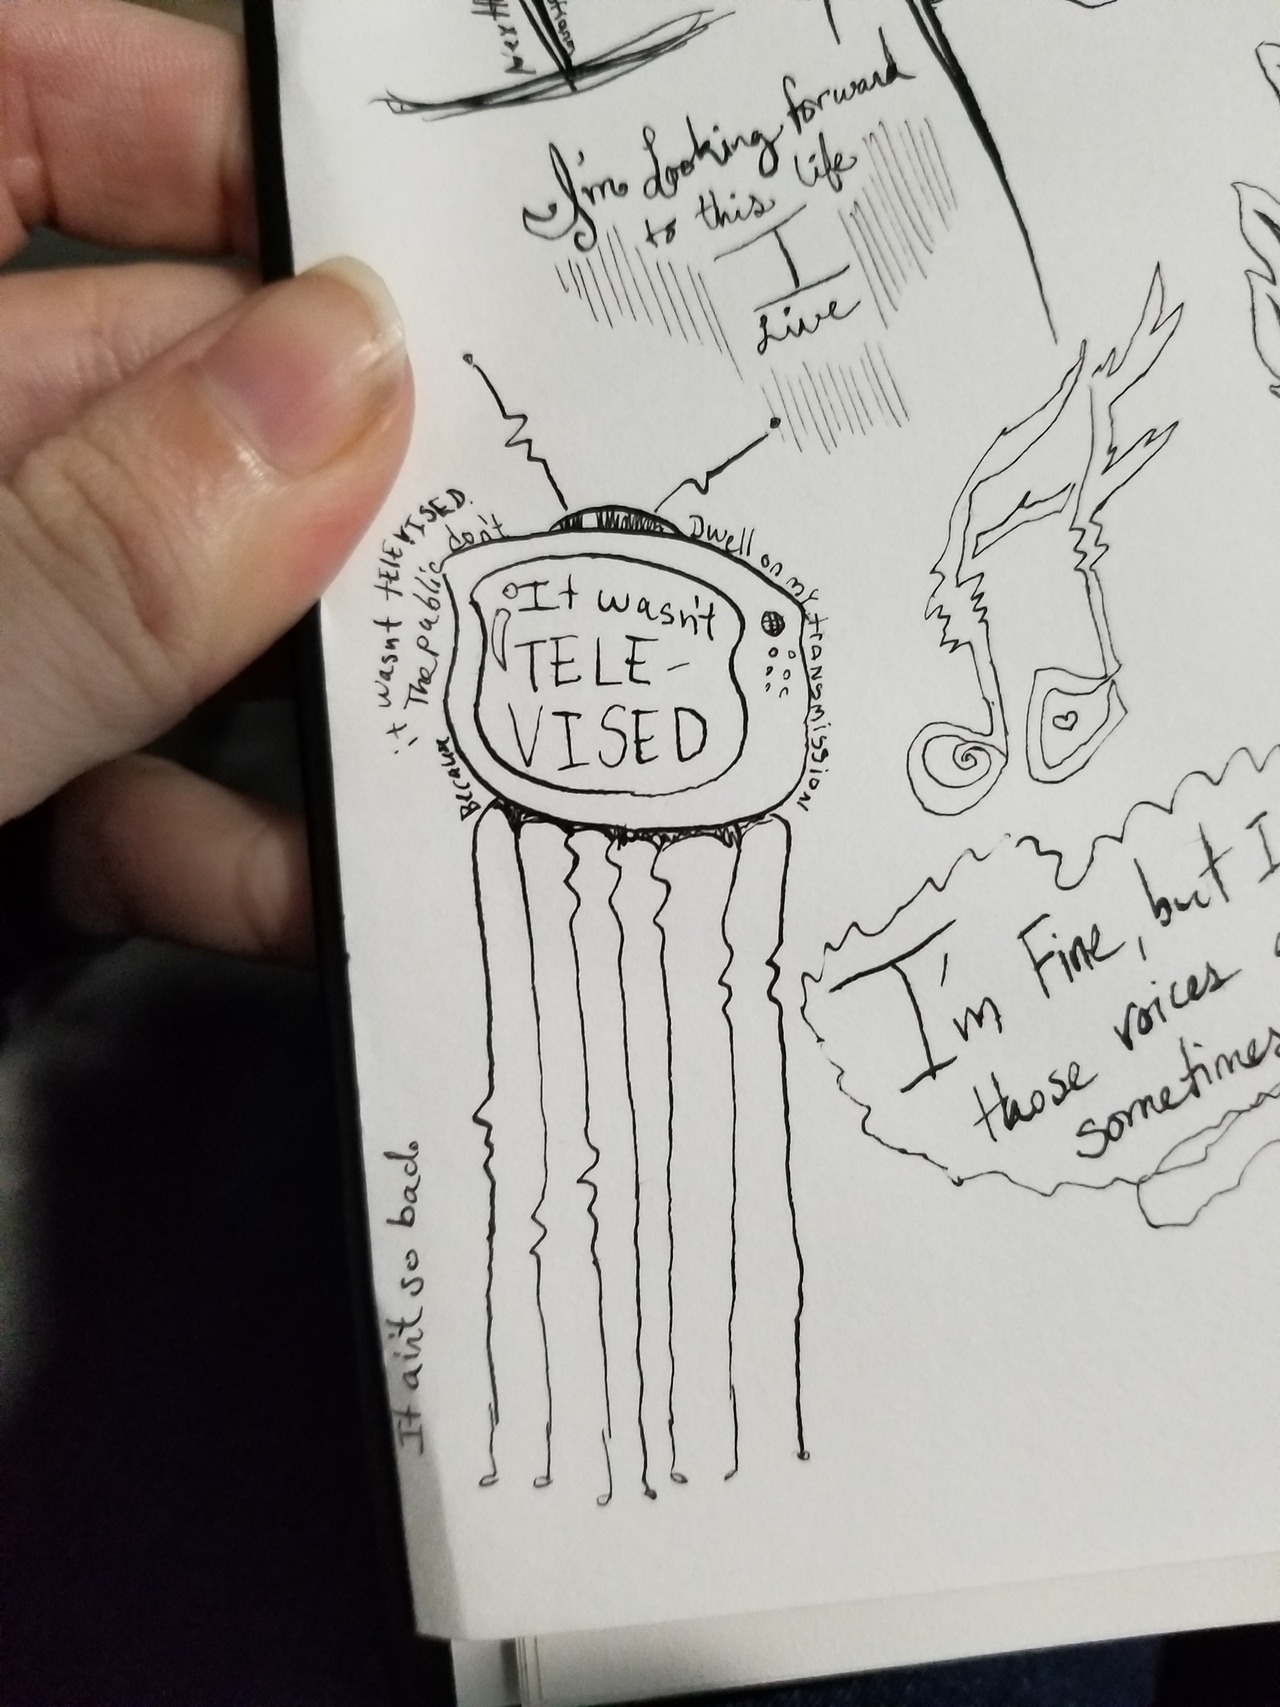 I'm Looking forward
to this life
I
Live
The public don't Dwell on my transmission
Because it wasn't TELEVISED.
It wasn't
TELE-
VISED
I'm Fine, but I
those voices
sometimes
It ain't so bad.